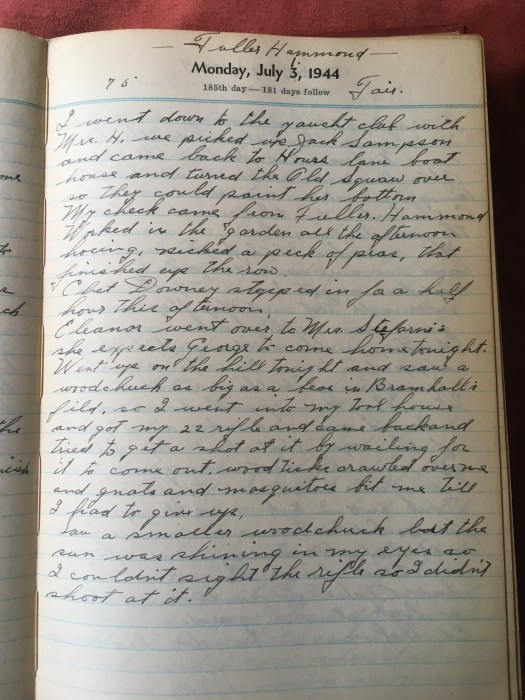 — Fuller Hammond —
Monday, July 3, 1944
75 185th day — 181 days follow Fair.
I went down to the yaucht club with
Mrs. H. we picked up Jack Sampson
and came back to Hours lane boat
house and turned the Old Squaw over
so they could paint her bottom
My check came from Fuller. Hammond
Worked in the garden all the afternoon
hoeing, picked a peck of peas, that
finished up the row.
Chet Downey stopped in for a half
hour this afternoon,
Eleanor went over to Mrs. Stefani's
she expects George to come home tonight.
Went up on the hill tonight and saw a
woodchuck as big as a bear in Bramhall's
fild, so I went into my tool house
and got my 22 rifle and came back and
tried to get a shot at it by wailing for
it to come out. wood ticks crawled over me
and gnats and mosquitoes bit me till
I had to give up,
Saw a smaller woodchuck but the
sun was shining in my eyes so
I couldn't sight the rifle so I didn't
shoot at it.
me
ch
the